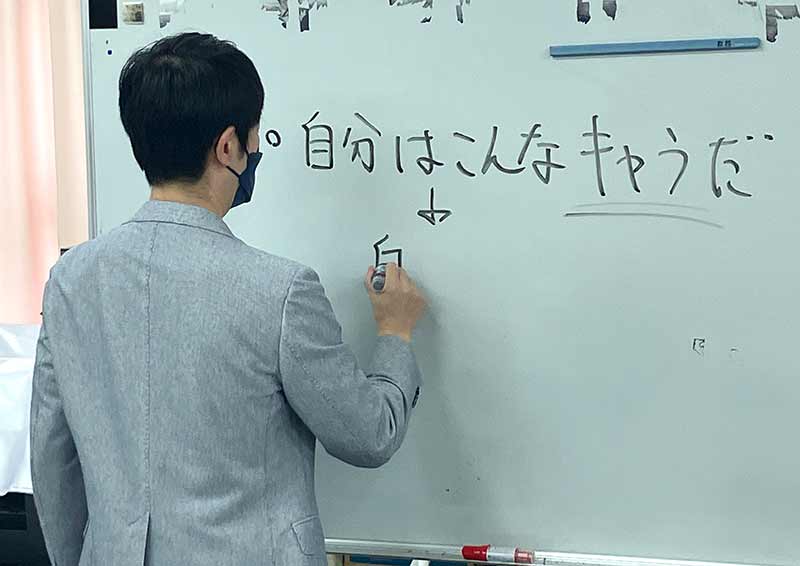 。自分はこんなキャラだ
↓
自